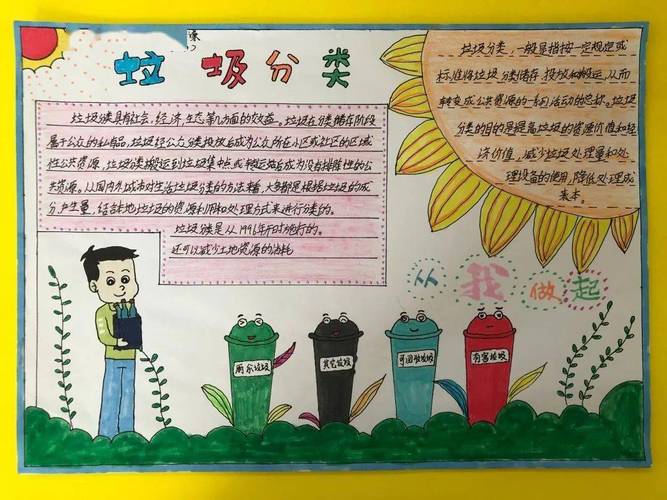 垃圾分类
垃圾分类具有社会、经济、生态等几方面的效益。垃圾在分类储存阶段
属于公众的私有品，垃圾经公众分类投放后成为公众所在小区或社区的区域
性公共资源，垃圾分类搬运到垃圾集中点或转运站后成为没有排除性的公
共资源。从国内外城市对生活垃圾分类的方法来看，大多都是根据垃圾的成
分产生量，结合本地垃圾的资源利用和处理方式来进行分类的。
垃圾分类是从1996年开始施行的。
还可以减少土地资源的消耗
垃圾分类，一般是指按一定规定或
标准将垃圾分类储存、投放和搬运，从而
转变成公共资源的一系列活动的总称。垃圾
分类的目的是提高垃圾的资源价值和经
济价值，减少垃圾处理量和处
理设备的使用，降低处理成
本。
从我做起
厨余垃圾
其它垃圾
可回收垃圾
有害垃圾